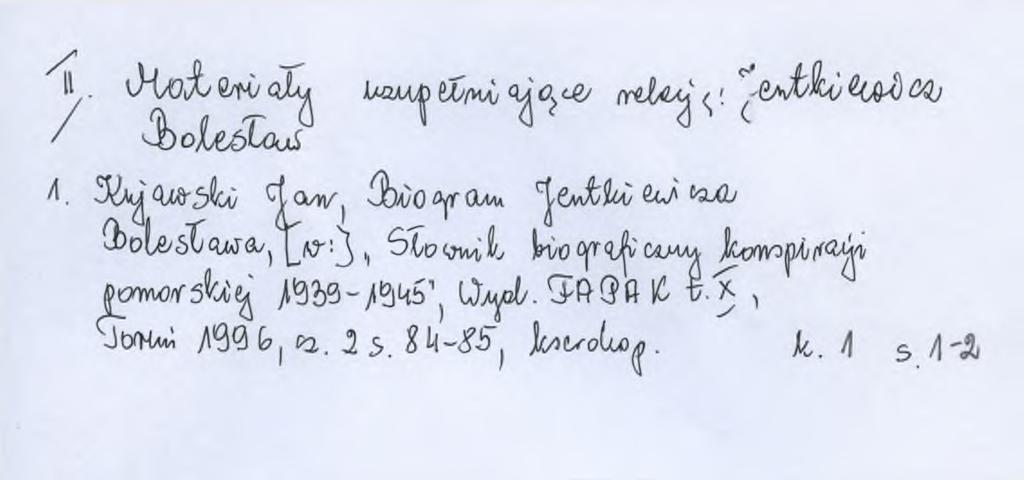 II. Materiały uzupełniające relację: Jentkiewicz
Bolesław
1. Kujawski Jan, Biogram Jentkiewicza
Bolesława, [w:], Słownik biograficzny konspiracji
pomorskiej 1939-1945", Wyd. FAPAK t. X,
Toruń 1996, cz. 2 s. 84-85, kserokop. k. 1 s. 1-2